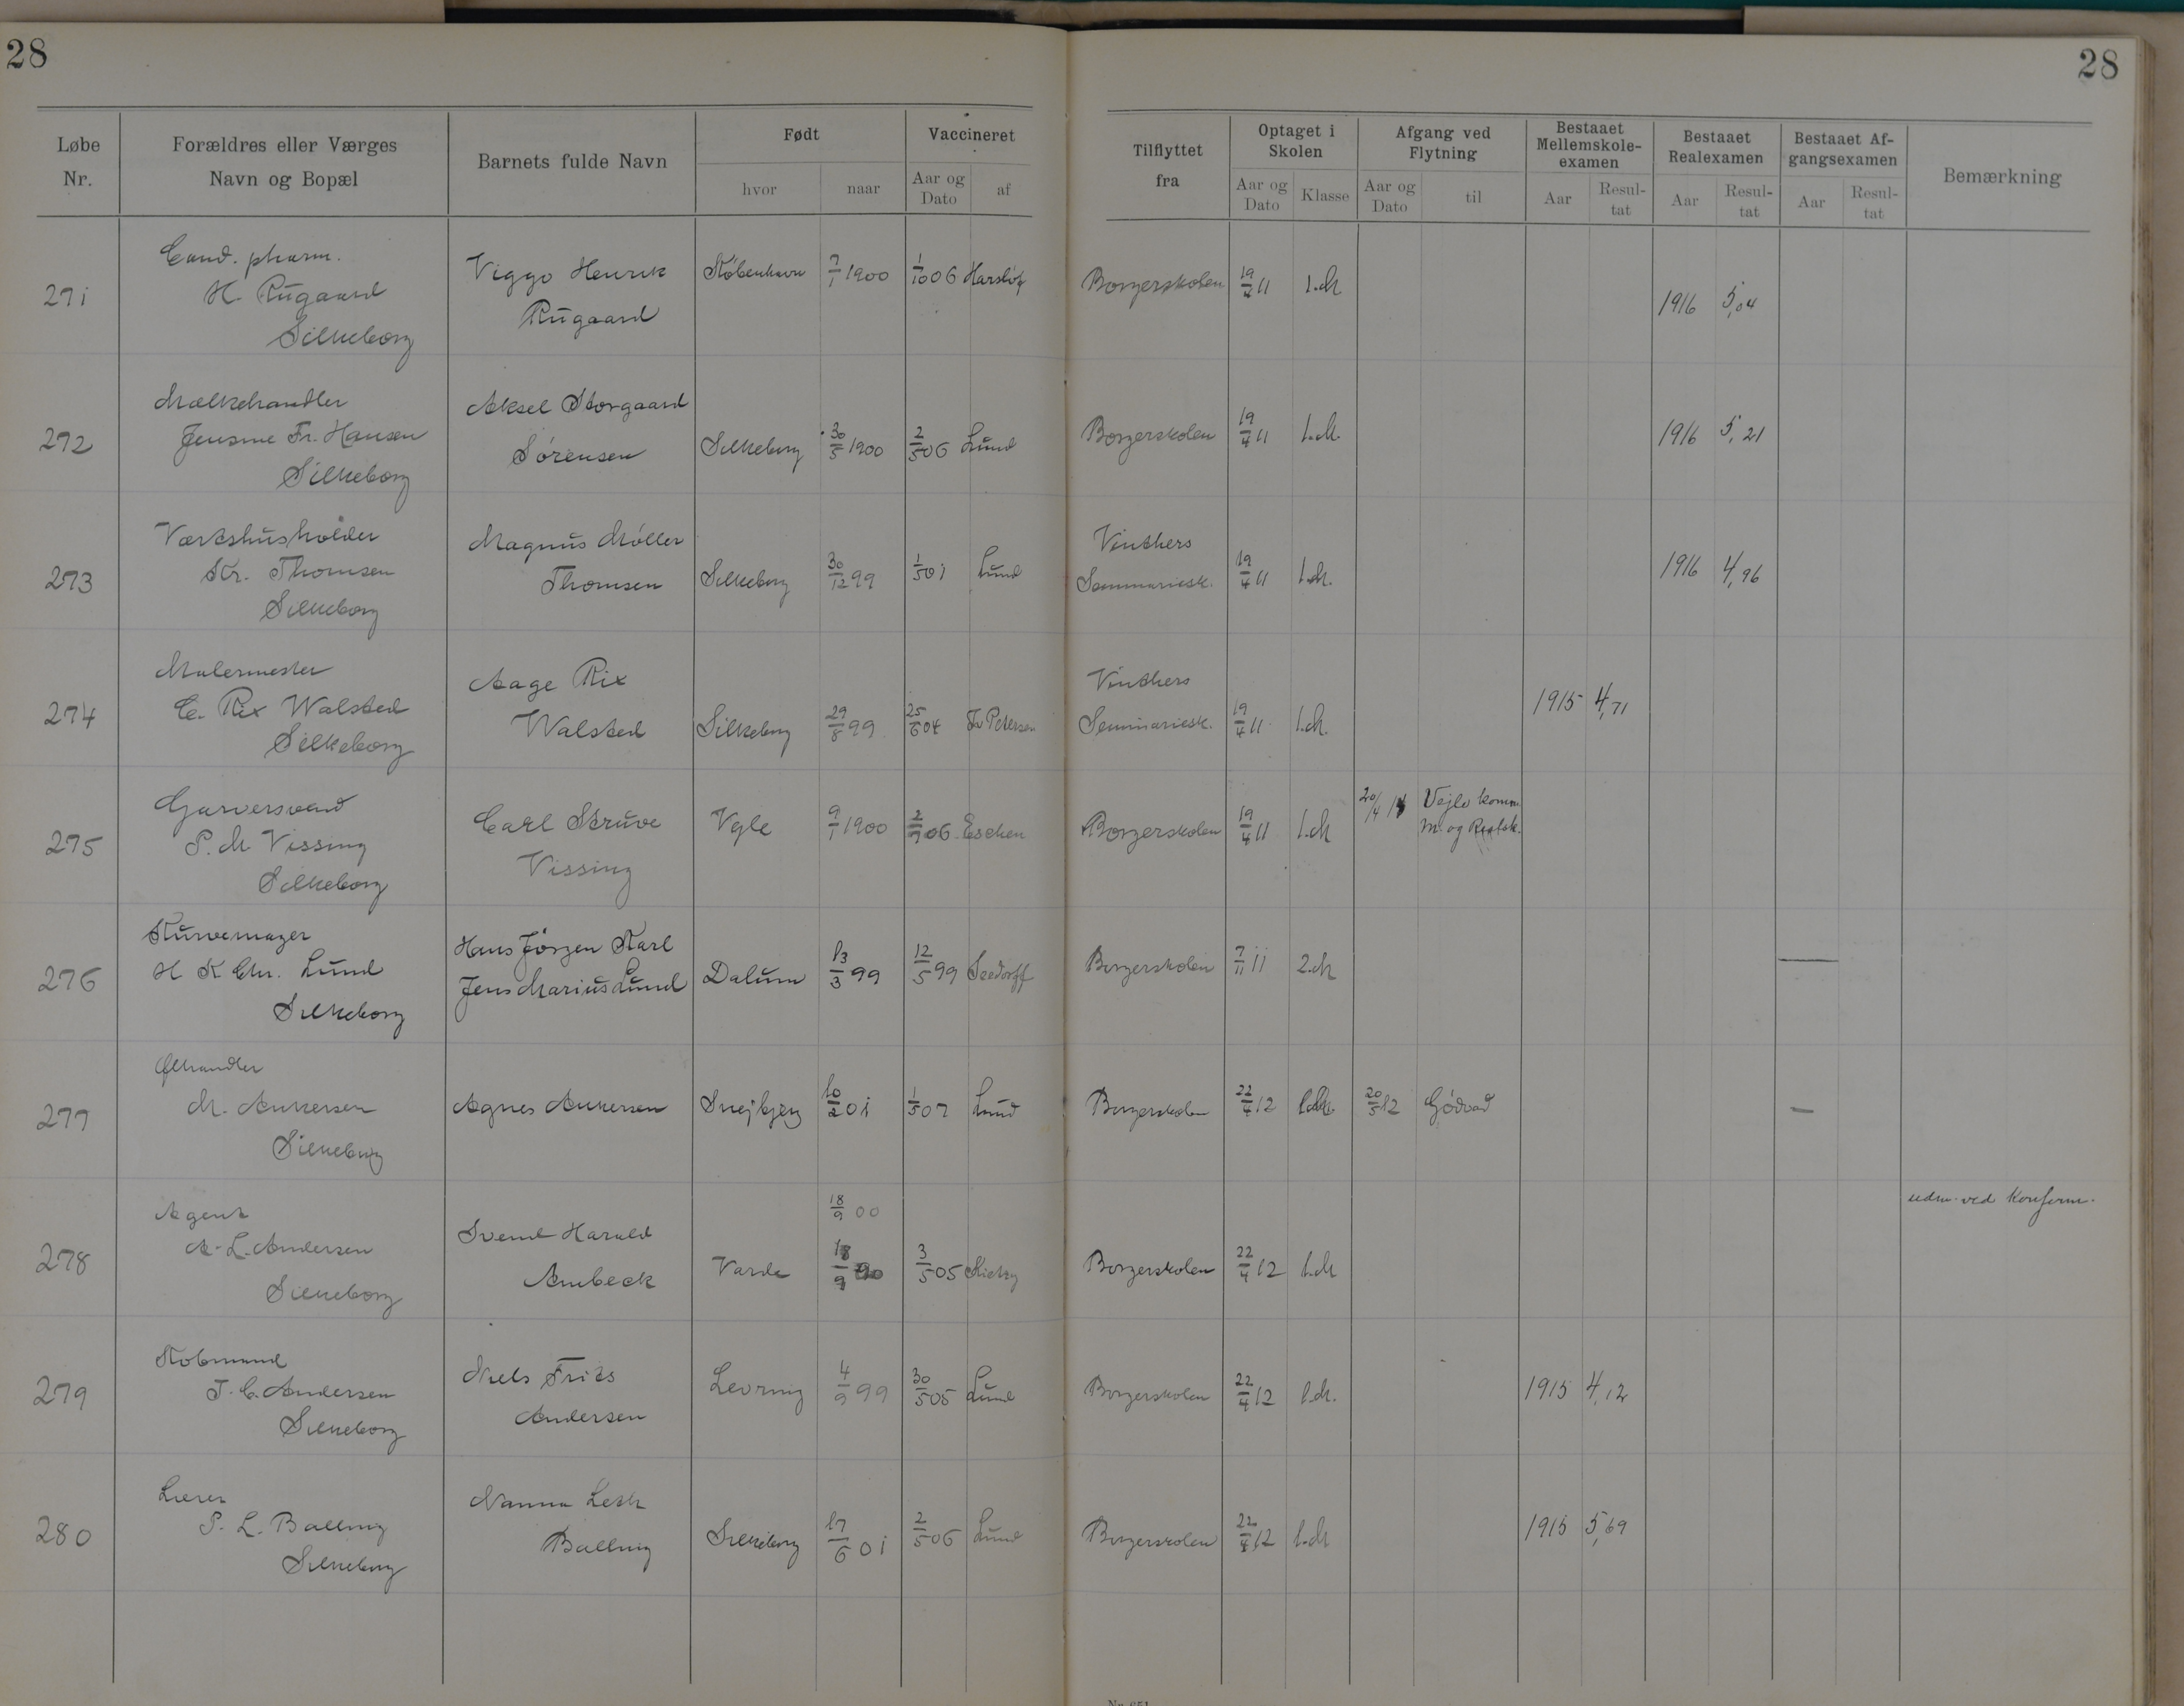 28
28
Løbe Nr.
Forældres eller Værges Navn og Bopæl
Barnets fulde Navn
Født
hvor
naar
Vaccineret
Aar og Dato
af
Tilflyttet fra
Optaget i Skolen
Aar og Dato
Klasse
Afgang ved Flytning
Aar og Dato
til
Bestaaet Mellemskole-examen
Aar
Resul-tat
Bestaaet Realexamen
Aar
Resul-tat
Bestaaet Af-gangsexamen
Aar
Resul-tat
Bemærkning
271
Cand. pharm.
H. Rugaard
Silkeborg
Viggo Henrik
Rugaard
København 7/1 1900 1/10 06
Borgerskolen 19/4 11 1.M 1916 5,04
272
Mælkehandler
Jensine Fr. Hansen
Silkeborg
Aksel Storgaard
Sørensen
Silkeborg 30/5 1900 2/5 06 Lund
Borgerskolen 19/4 11 1.M. 1916 5,21
273
Værtshusholder
Kr. Thomsen
Silkeborg
Magnus Møller
Thomsen
Silkeborg 30/12 99 1/5 01 Lund
Vinthers
Seminariesk. 19/4 11 1.M. 1916 4,96
274
Malermester
C. Rix Walsted
Silkeborg
Aage Rix
Walsted
Silkeborg 29/8 99 25/6 04 Fr Petersen
Vinthers
Seminariesk. 19/4 11 1.M. 1915 4,71
275
Garversvend
P. M Vissing
Silkeborg
Carl Struve
Vissing
Vejle 9/1 1900 2/9 06 Eschen
Borgerskolen 19/4 11 1.M 20/4 14 Vejle komm.
M. og Realsk.
276
Kurvemager
H K Chr. Lund
Silkeborg
Hans Jørgen Karl
Jens Marius Lund
Dalum 13/3 99 12/5 99 Seedorff
Borgerskolen 7/11 11 2.M —
277
Ølhandler
M. Ankersen
Silkeborg
Agnes Ankersen
Snejbjerg 10/2 01 1/5 07 Lund
Borgerskolen 22/4 12 20/5 12 Gødvad —
278
Agent
A. L. Andersen
Silkeborg
Svend Harald
Ambeck
Varde
18/9 00
18/9
3/5 05
Borgerskolen 22/4 12 1.M
udm. ved Konfirm.
279
Kobmand
J. C. Andersen
Silkeborg
Niels Frits
Andersen
Levring 4/9 99 30/5 05 Lund
Borgerskolen 22/4 12 1.M. 1915 4,12
280
Lærer
P. L. Balling
Silkeborg
Nanna Leth
Balling
Silkeborg 17/6 01 2/5 06 Lund
Borgerskolen 22/4 12 1.M 1915 5,69